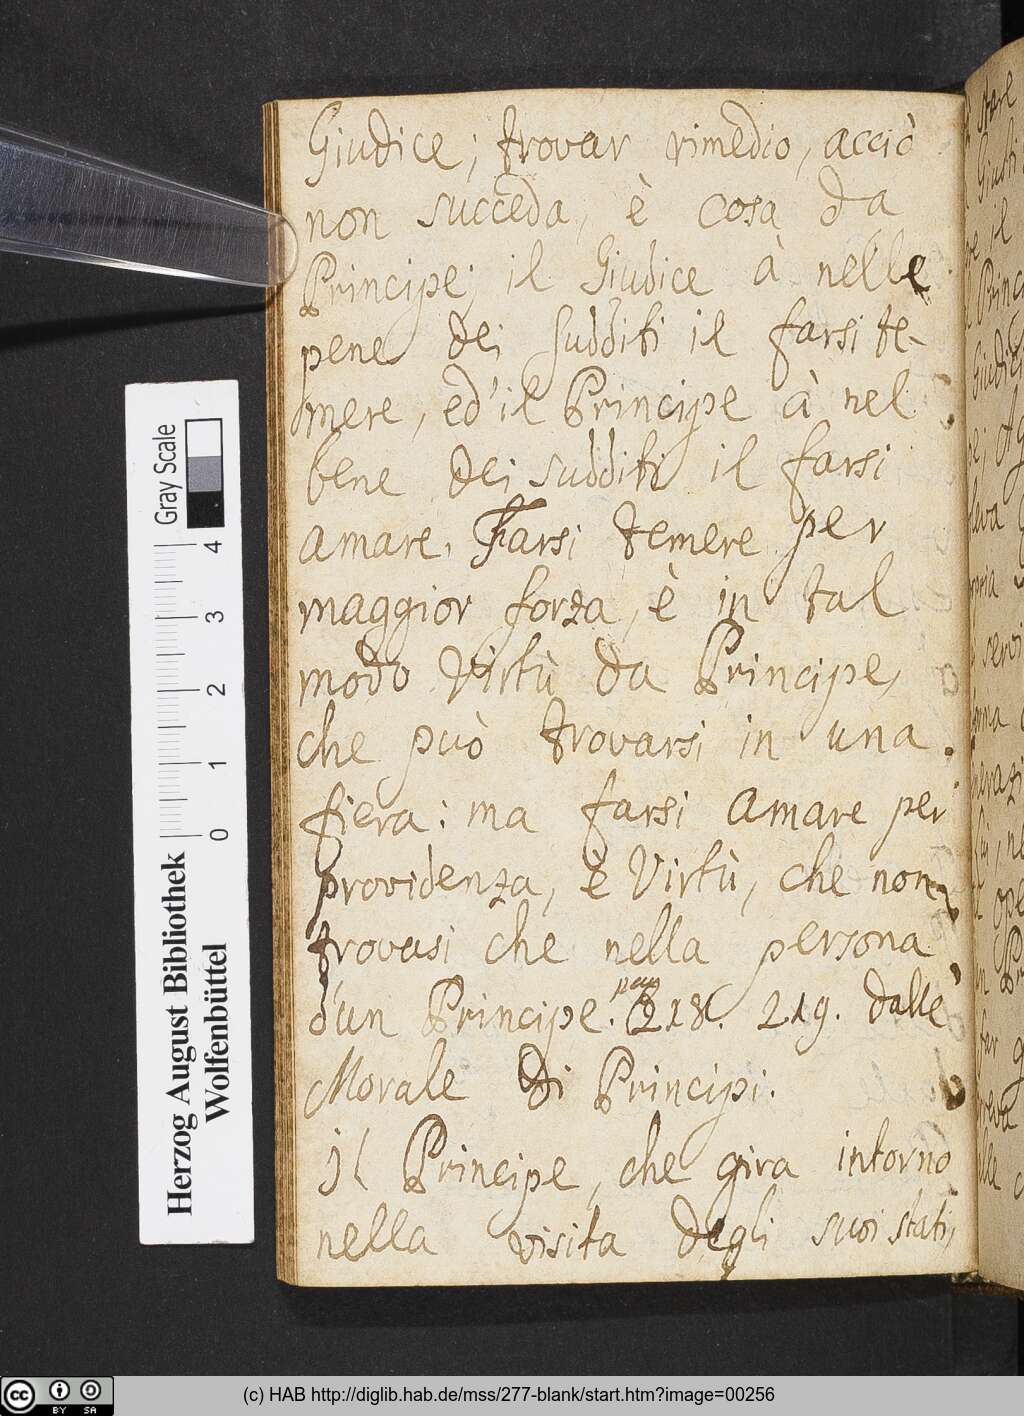 Giudice; trovar rimedio, acciò
non succeda, è cosa da
Principe; il Giudice à nelle
pene dei sudditi il farsi te-
mere, ed'il Principe à nel
bene dei sudditi il farsi
amare. Farsi temere per
maggior forza, è in tal
modo Virtù da Principe,
che può trovarsi in una
fiera: ma farsi amare per
providenza, è Virtù, che non
trovasi che nella persona
d'un Principe. pag 218. 219. dalle
Morale di Principi.
il Principe, che gira intorno
nella visita degli suoi stati,
Gray Scale
4
3
2
1
0
Herzog August Bibliothek
Wolfenbüttel
cc BY SA
(c) HAB http://diglib.hab.de/mss/277-blank/start.htm?image=00256